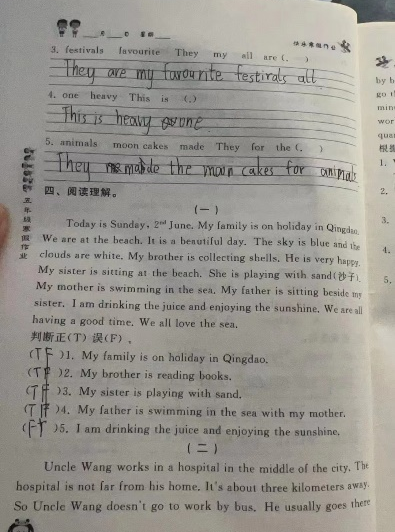 月 日 星期
快乐寒假作业
3. festivals favourite They my all are (. )
They are my favourite festivals all
4. one heavy This is (.)
This is heavy one.
5. animals moon cakes made They for the (. )
They made the moon cakes for animals
四、阅读理解。
(一)
Today is Sunday, 2nd June. My family is on holiday in Qingdao.
We are at the beach. It is a beautiful day. The sky is blue and the
clouds are white. My brother is collecting shells. He is very happy.
My sister is sitting at the beach. She is playing with sand(沙子).
My mother is swimming in the sea. My father is sitting beside my
sister. I am drinking the juice and enjoying the sunshine. We are all
having a good time. We all love the sea.
判断正(T)误(F)。
(T F)1. My family is on holiday in Qingdao.
(T F)2. My brother is reading books.
(T F)3. My sister is playing with sand.
(T F)4. My father is swimming in the sea with my mother.
(F T)5. I am drinking the juice and enjoying the sunshine.
(二)
Uncle Wang works in a hospital in the middle of the city. The
hospital is not far from his home. It's about three kilometers away.
So Uncle Wang doesn't go to work by bus. He usually goes there
五年级寒假作业
1.
2.
3.
4.
5.